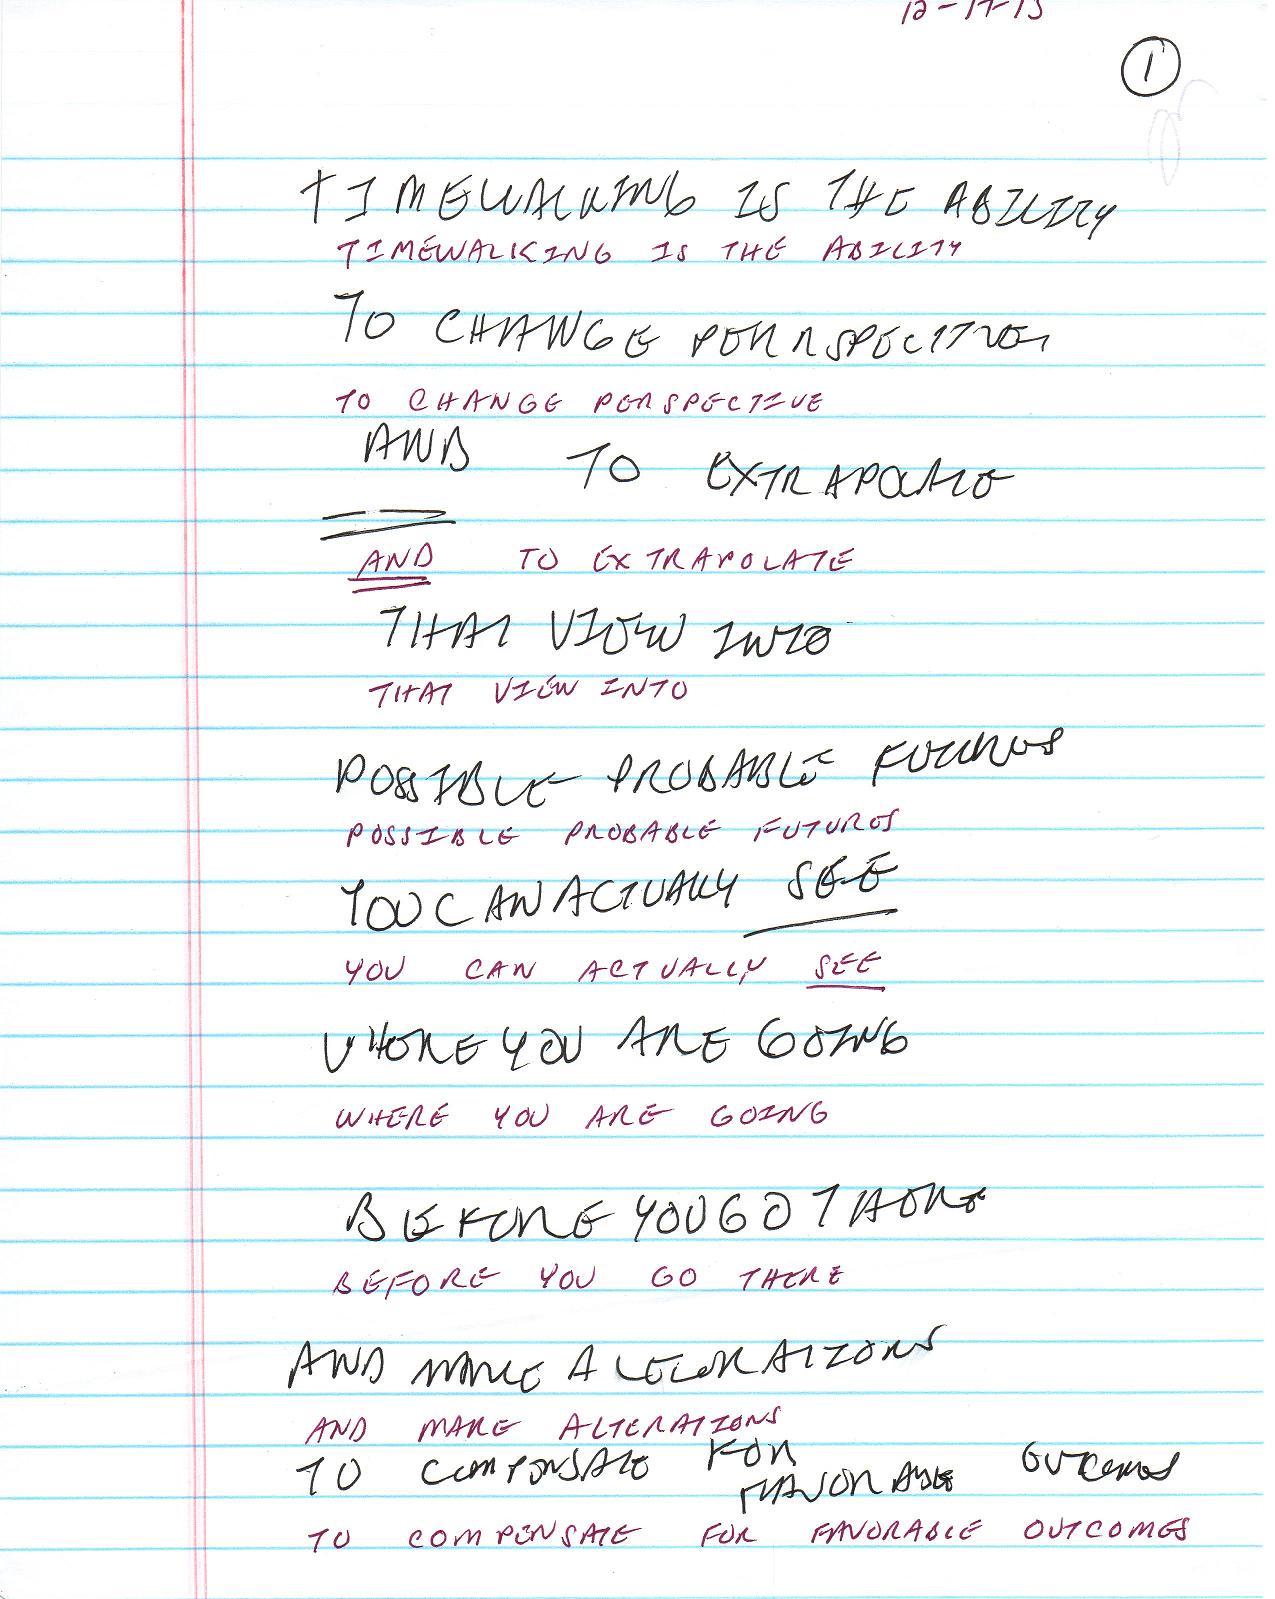 12-17-15
1
TIMEWALKING IS THE ABILITY
TIMEWALKING IS THE ABILITY
TO CHANGE PERRSPECTIVE
TO CHANGE PERSPECTIVE
AND TO EXTRAPOLATE
AND TO EXTRAPOLATE
THAT VIEW INTO
THAT VIEW INTO
POSSIBLE PROBABLE FUTURES
POSSIBLE PROBABLE FUTURES
YOU CAN ACTUALLY SEE
YOU CAN ACTUALLY SEE
WHERE YOU ARE GOING
WHERE YOU ARE GOING
BEFORE YOU GO THERE
BEFORE YOU GO THERE
AND MAKE ALTERATIONS
AND MAKE ALTERATIONS
TO COMPENSATE FOR FAVORABLE OUTCOMES
TO COMPENSATE FOR FAVORABLE OUTCOMES